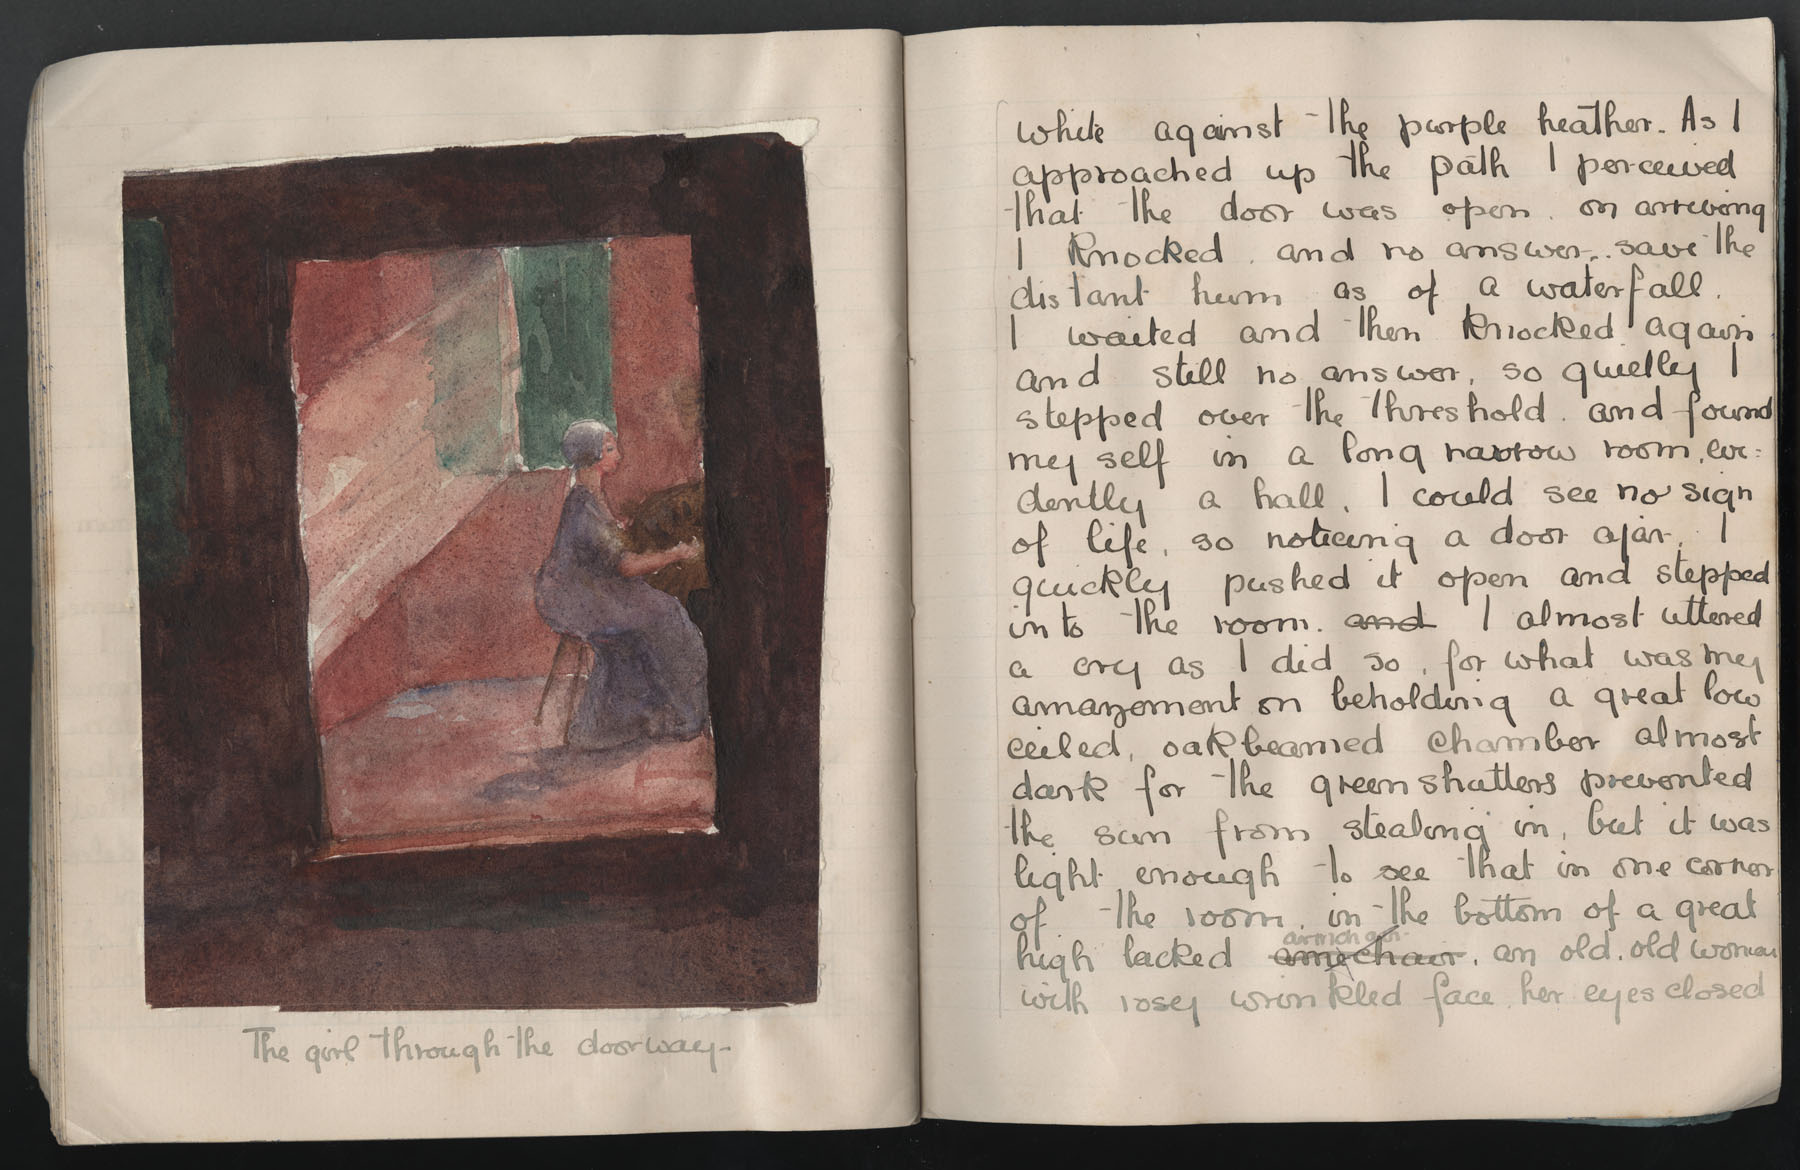 The girl through the doorway-
white against the purple heather. As I
approached up the path I perceived
that the door was open. on arriving
I knocked. and no answer,.. save the
distant hum as of a waterfall.
I waited and then knocked again
and still no answer, so quietly I
stepped over the threshold. and found
my self in a long narrow room, evi=
dently a hall, I could see no sign
of life, so noticing a door ajar, I
quickly pushed it open and stepped
into the room. and I almost uttered
a cry as I did so, for what was my
amazement on beholding a great low
ceiled, oakbeamed chamber almost
dark for the green shutters prevented
the sun from stealing in, but it was
light enough to see that in one corner
of the room, in the bottom of a great
armchair
high lacked armchair, an old, old woman
with rosey wrinkled face, her eyes closed